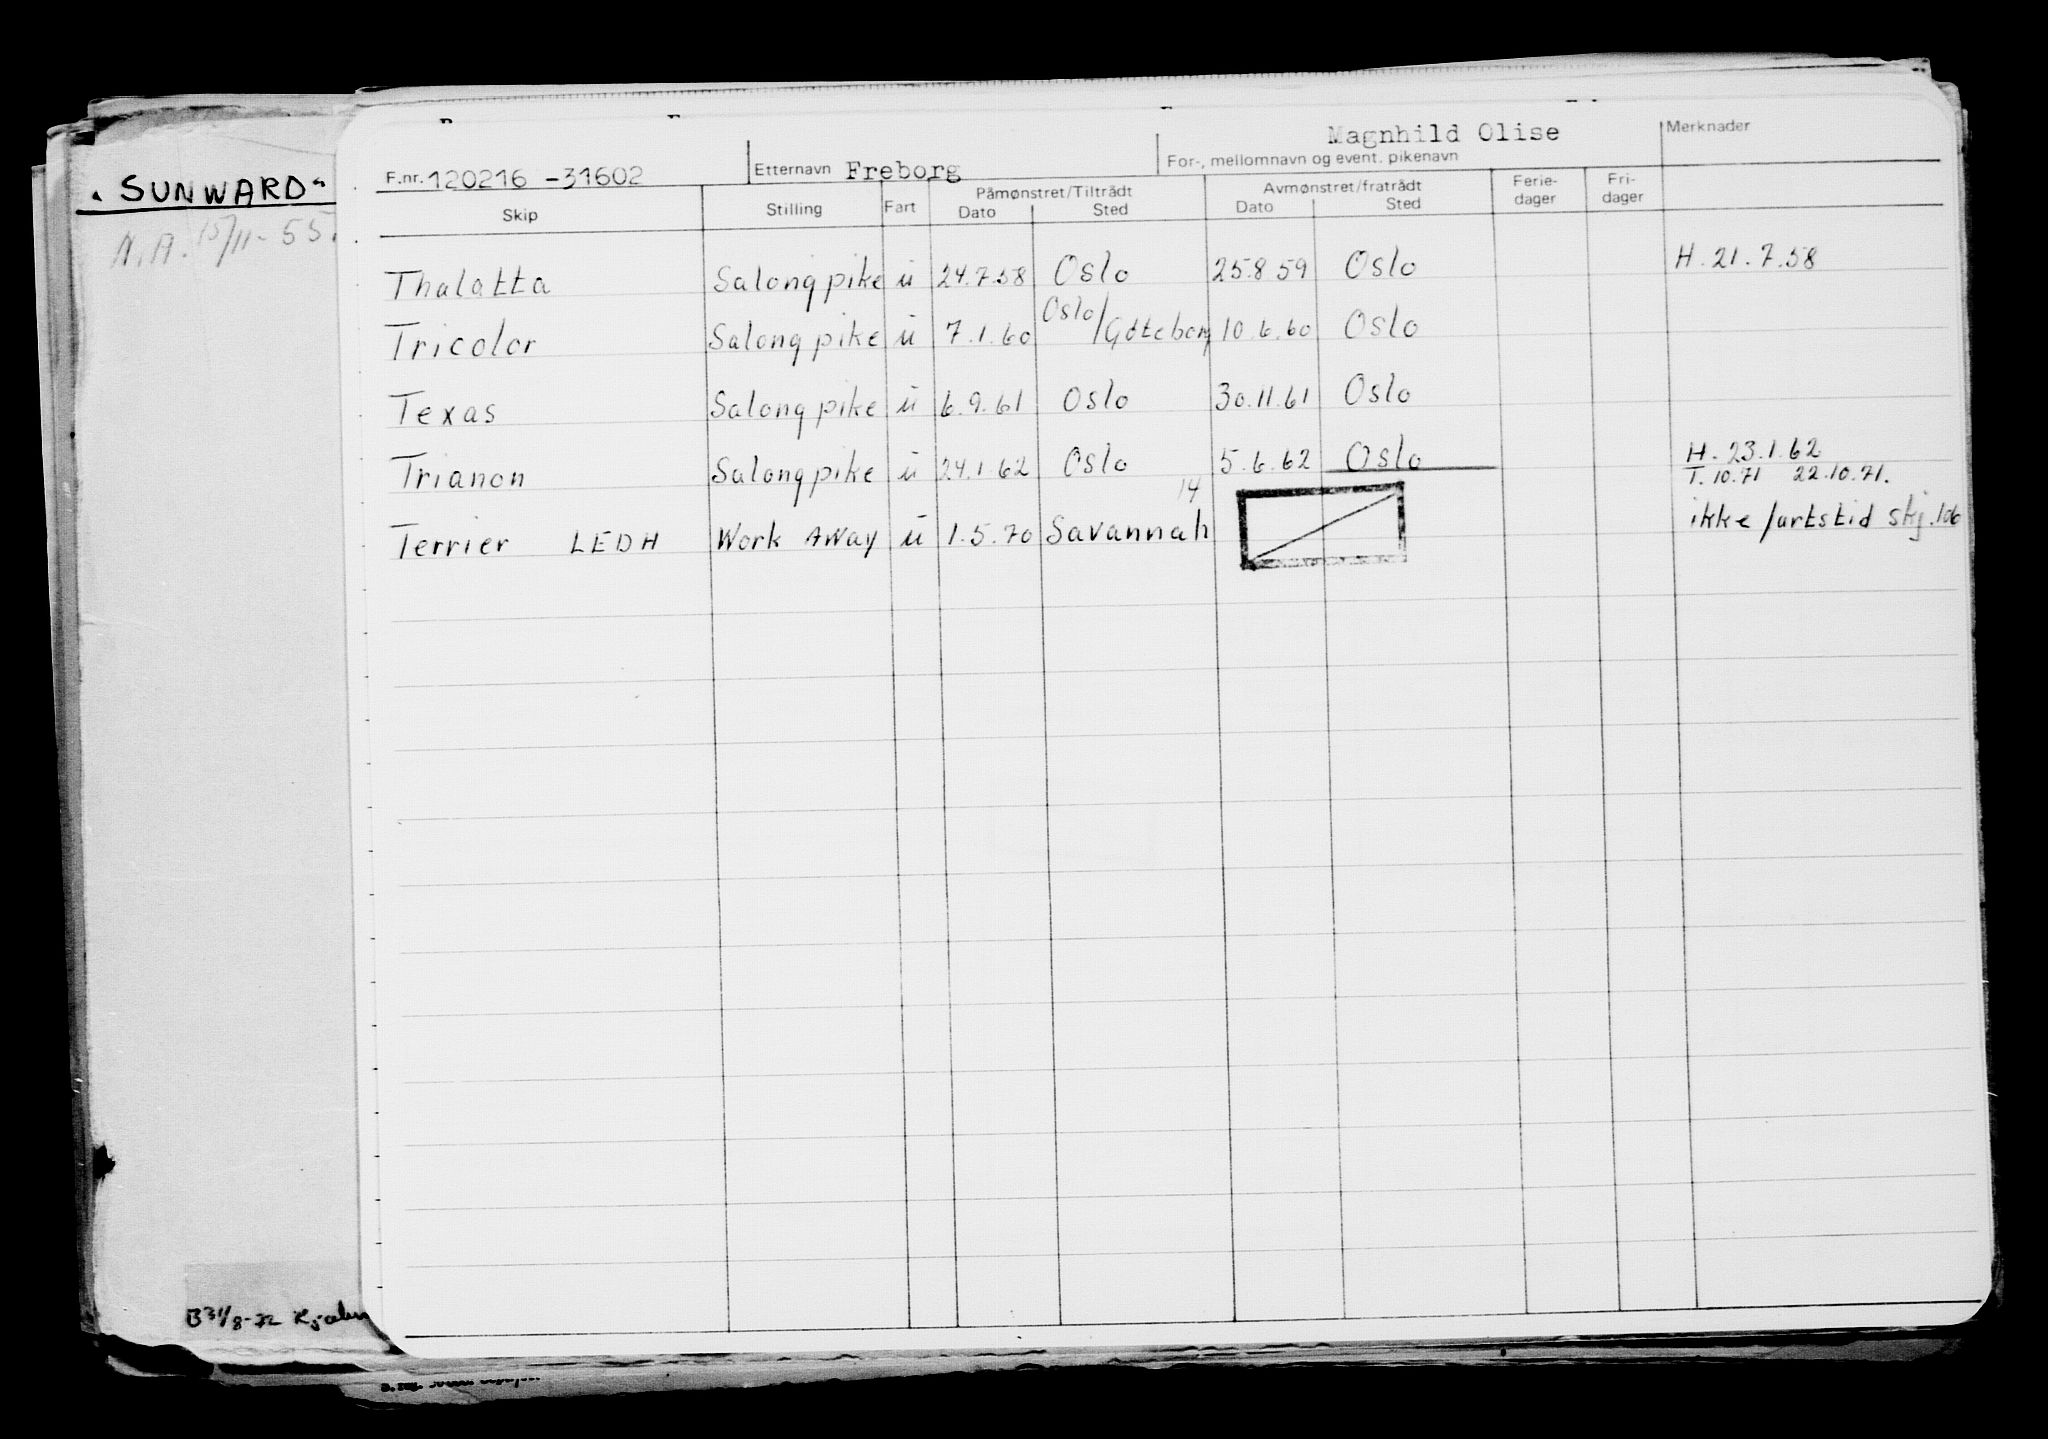 "SUNWARD"
N.A. 15/11-55.
F.nr. 120216 -31602 Etternavn Freborg Magnhild Olise For-, mellomnavn og event. pikenavn Merknader
Skip Stilling Fart Påmønstret/Tiltrådt Dato Sted Avmønstret/fratrådt Dato Sted Ferie-dager Fri-dager
Thalatta Salongpike u 24.7.58 Oslo 25.8.59 Oslo H. 21.7.58
Tricolor Salongpike u 7.1.60 Oslo/Göteborg 10.6.60 Oslo
Texas Salongpike u 6.9.61 Oslo 30.11.61 Oslo
Trianon Salongpike u 24.1.62 Oslo 5.6.62 Oslo H. 23.1.62
T. 10.71 22.10.71.
14
Terrier LEDH Work Away u 1.5.70 Savannah ikke fartstid skj. 106
B 31/8-72